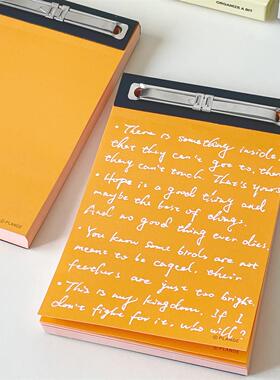 ORGANIZE A BIT
• There is something inside
that they can't get to, that
they can't touch. That's yours
• Hope is a good thing and
maybe the best of things.
And no good thing ever dies
• You know some birds are not
meant to be caged, their
feathers are just too bright
• This is my kingdom. If I
don't fight for it, who will?
© PLANGE
© PLANGE